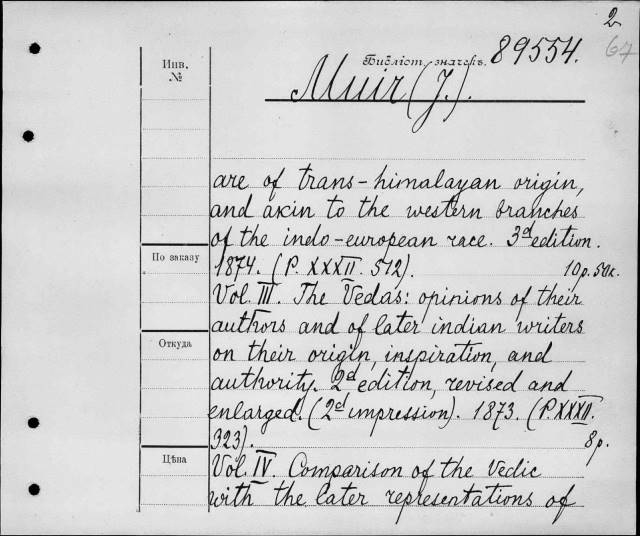 2
67
Инв.
№
Библіот. значекъ. 89554.
Muir (J.).
are of trans-himalayan origin,
and akin to the western branches
of the indo-european race. 3d edition.
По заказу
1874. (P. XXXII. 512). 10 р. 50 к.
Vol. III. The Vedas: opinions of their
authors and of later indian writers
Откуда
on their origin, inspiration, and
authority. 2d edition, revised and
enlarged. (2d impression). 1873. (P. XXXII.
323). 8 р.
Цѣна
Vol. IV. Comparison of the Vedic
with the later representations of